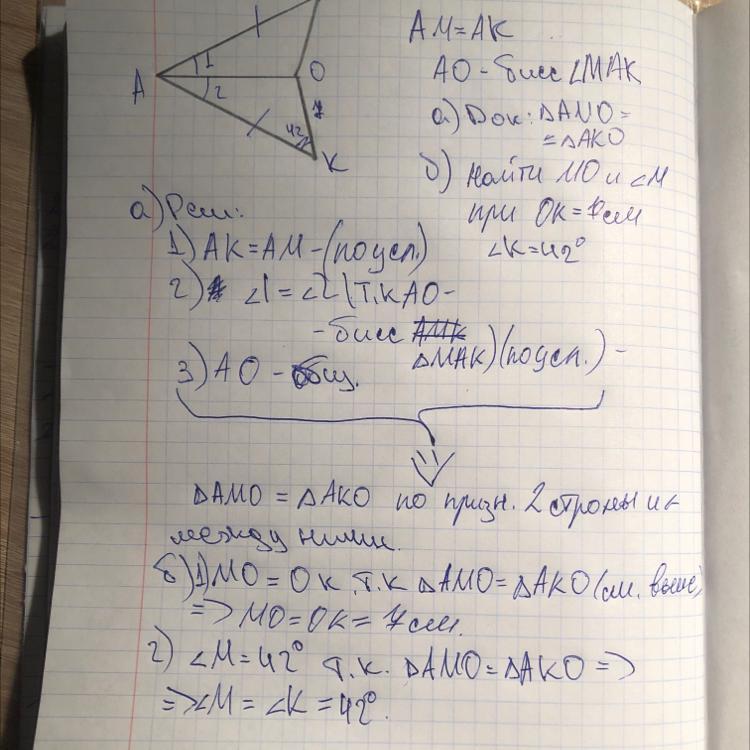 AM=AK
AO - бисс ∠MAK
а) Док: ΔAMO =
= ΔAKO
б) Найти MO и ∠M
при OK=7см
∠K=42°
A
1
2
O
7
42
K
а) Реш:
1) AK=AM-(по усл.)
2) ∠1=∠2 (т.к AO-
- бисс
ΔMAK)(по усл.) -
3) AO - общ.
ΔAMO = ΔAKO по призн. 2 стороны и ∠
между ними.
б) 1) MO = OK т.к ΔAMO = ΔAKO (см. выше)
=> MO=OK= 7см.
2) ∠M=42° т.к. ΔAMO=ΔAKO =>
=> ∠M = ∠K = 42°.